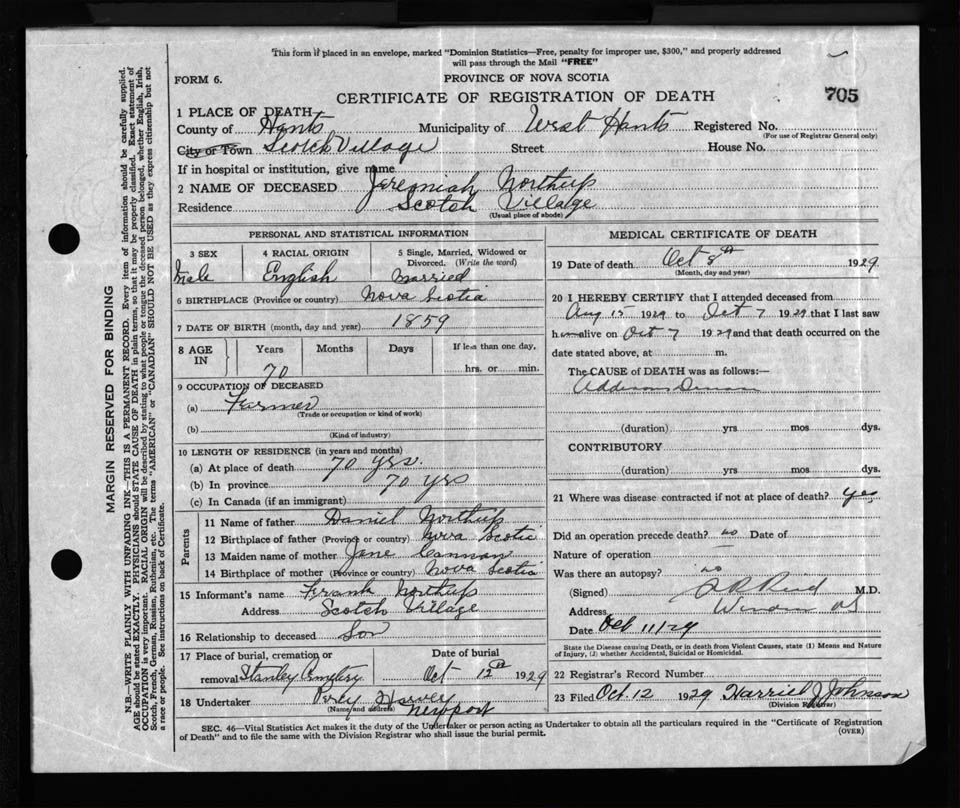 This form if placed in an envelope, marked "Dominion Statistics—Free, penalty for improper use, $300," and properly addressed
will pass through the Mail "FREE"
FORM 6.
PROVINCE OF NOVA SCOTIA
CERTIFICATE OF REGISTRATION OF DEATH
705
1 PLACE OF DEATH
County of Hants Municipality of West Hants Registered No.
(For use of Registrar General only)
City or Town Scotch Village Street House No.
If in hospital or institution, give name
2 NAME OF DECEASED Jeremiah Northup
Residence Scotch Village
(Usual place of abode)
PERSONAL AND STATISTICAL INFORMATION
3 SEX 4 RACIAL ORIGIN 5 Single, Married, Widowed or
Divorced. (Write the word)
Male English Married
6 BIRTHPLACE (Province or country) Nova Scotia
7 DATE OF BIRTH (month, day and year) 1859
8 AGE IN Years Months Days If less than one day,
70 hrs. or min.
9 OCCUPATION OF DECEASED
(a) Farmer
(Trade or occupation or kind of work)
(b)
(Kind of industry)
10 LENGTH OF RESIDENCE (in years and months)
(a) At place of death 70 yrs.
(b) In province 70 yrs
(c) In Canada (if an immigrant)
Parents
11 Name of father Daniel Northup
12 Birthplace of father (Province or country) Nova Scotia
13 Maiden name of mother Jane
14 Birthplace of mother (Province or country) Nova Scotia
15 Informant's name Frank Northup
Address Scotch Village
16 Relationship to deceased Son
17 Place of burial, cremation or Date of burial
removal Stanley Cemetery Oct 12th 1929
18 Undertaker Harvey
(Name and address) Newport
MEDICAL CERTIFICATE OF DEATH
19 Date of death Oct 8th 1929
(Month, day and year)
20 I HEREBY CERTIFY that I attended deceased from
Aug 15 1929 to Oct 7 1929 that I last saw
him alive on Oct 7 1929 and that death occurred on
date stated above, at m.
The CAUSE of DEATH was as follows:—
Addisons
(duration) yrs mos dys.
CONTRIBUTORY
(duration) yrs. mos dys.
21 Where was disease contracted if not at place of death? yes
Did an operation precede death? no Date of
Nature of operation
Was there an autopsy? no
(Signed) Reid M.D.
Address Windsor NS
Date Oct 11/29
State the Disease causing Death, or in death from Violent Causes, state (1) Means and Nature
of Injury, (2) whether Accidental, Suicidal or Homicidal.
22 Registrar's Record Number
23 Filed Oct. 12 1929 Harriet J Johnson
(Division Registrar)
SEC. 46—Vital Statistics Act makes it the duty of the Undertaker or person acting as Undertaker to obtain all the particulars required in the "Certificate of Registration
of Death" and to file the same with the Division Registrar who shall issue the burial permit.
(OVER)
MARGIN RESERVED FOR BINDING
N.B.—WRITE PLAINLY WITH UNFADING INK—THIS IS A PERMANENT RECORD. Every item of information should be carefully supplied.
AGE should be stated EXACTLY. PHYSICIANS should STATE CAUSE OF DEATH in plain terms, so that it may be properly classified. Exact statement of
OCCUPATION is very important. RACIAL ORIGIN will be described by stating to what people or tongue the deceased person belonged, whether English, Irish,
Scotch, French, German, Russian, Ruthenian, etc. The terms "AMERICAN" or "CANADIAN" SHOULD NOT BE USED as they express citizenship but not
a race or people. See instructions on back of Certificate.